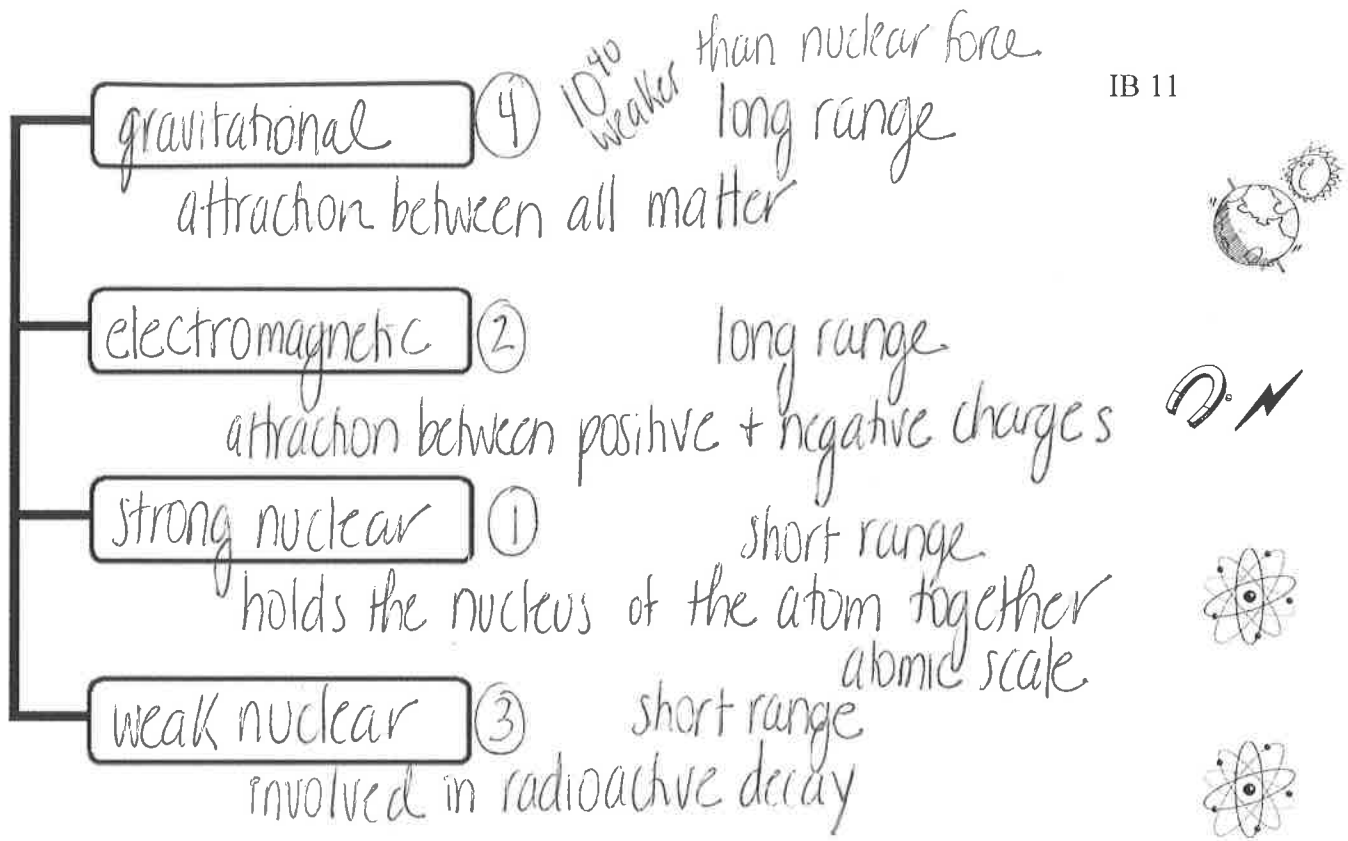 than nuclear force
IB 11
gravitational ④ 10⁴⁰ weaker long range
attraction between all matter
electromagnetic ② long range
attraction between positive + negative charges
strong nuclear ① short range
holds the nucleus of the atom together
atomic scale
weak nuclear ③ short range
involved in radioactive decay